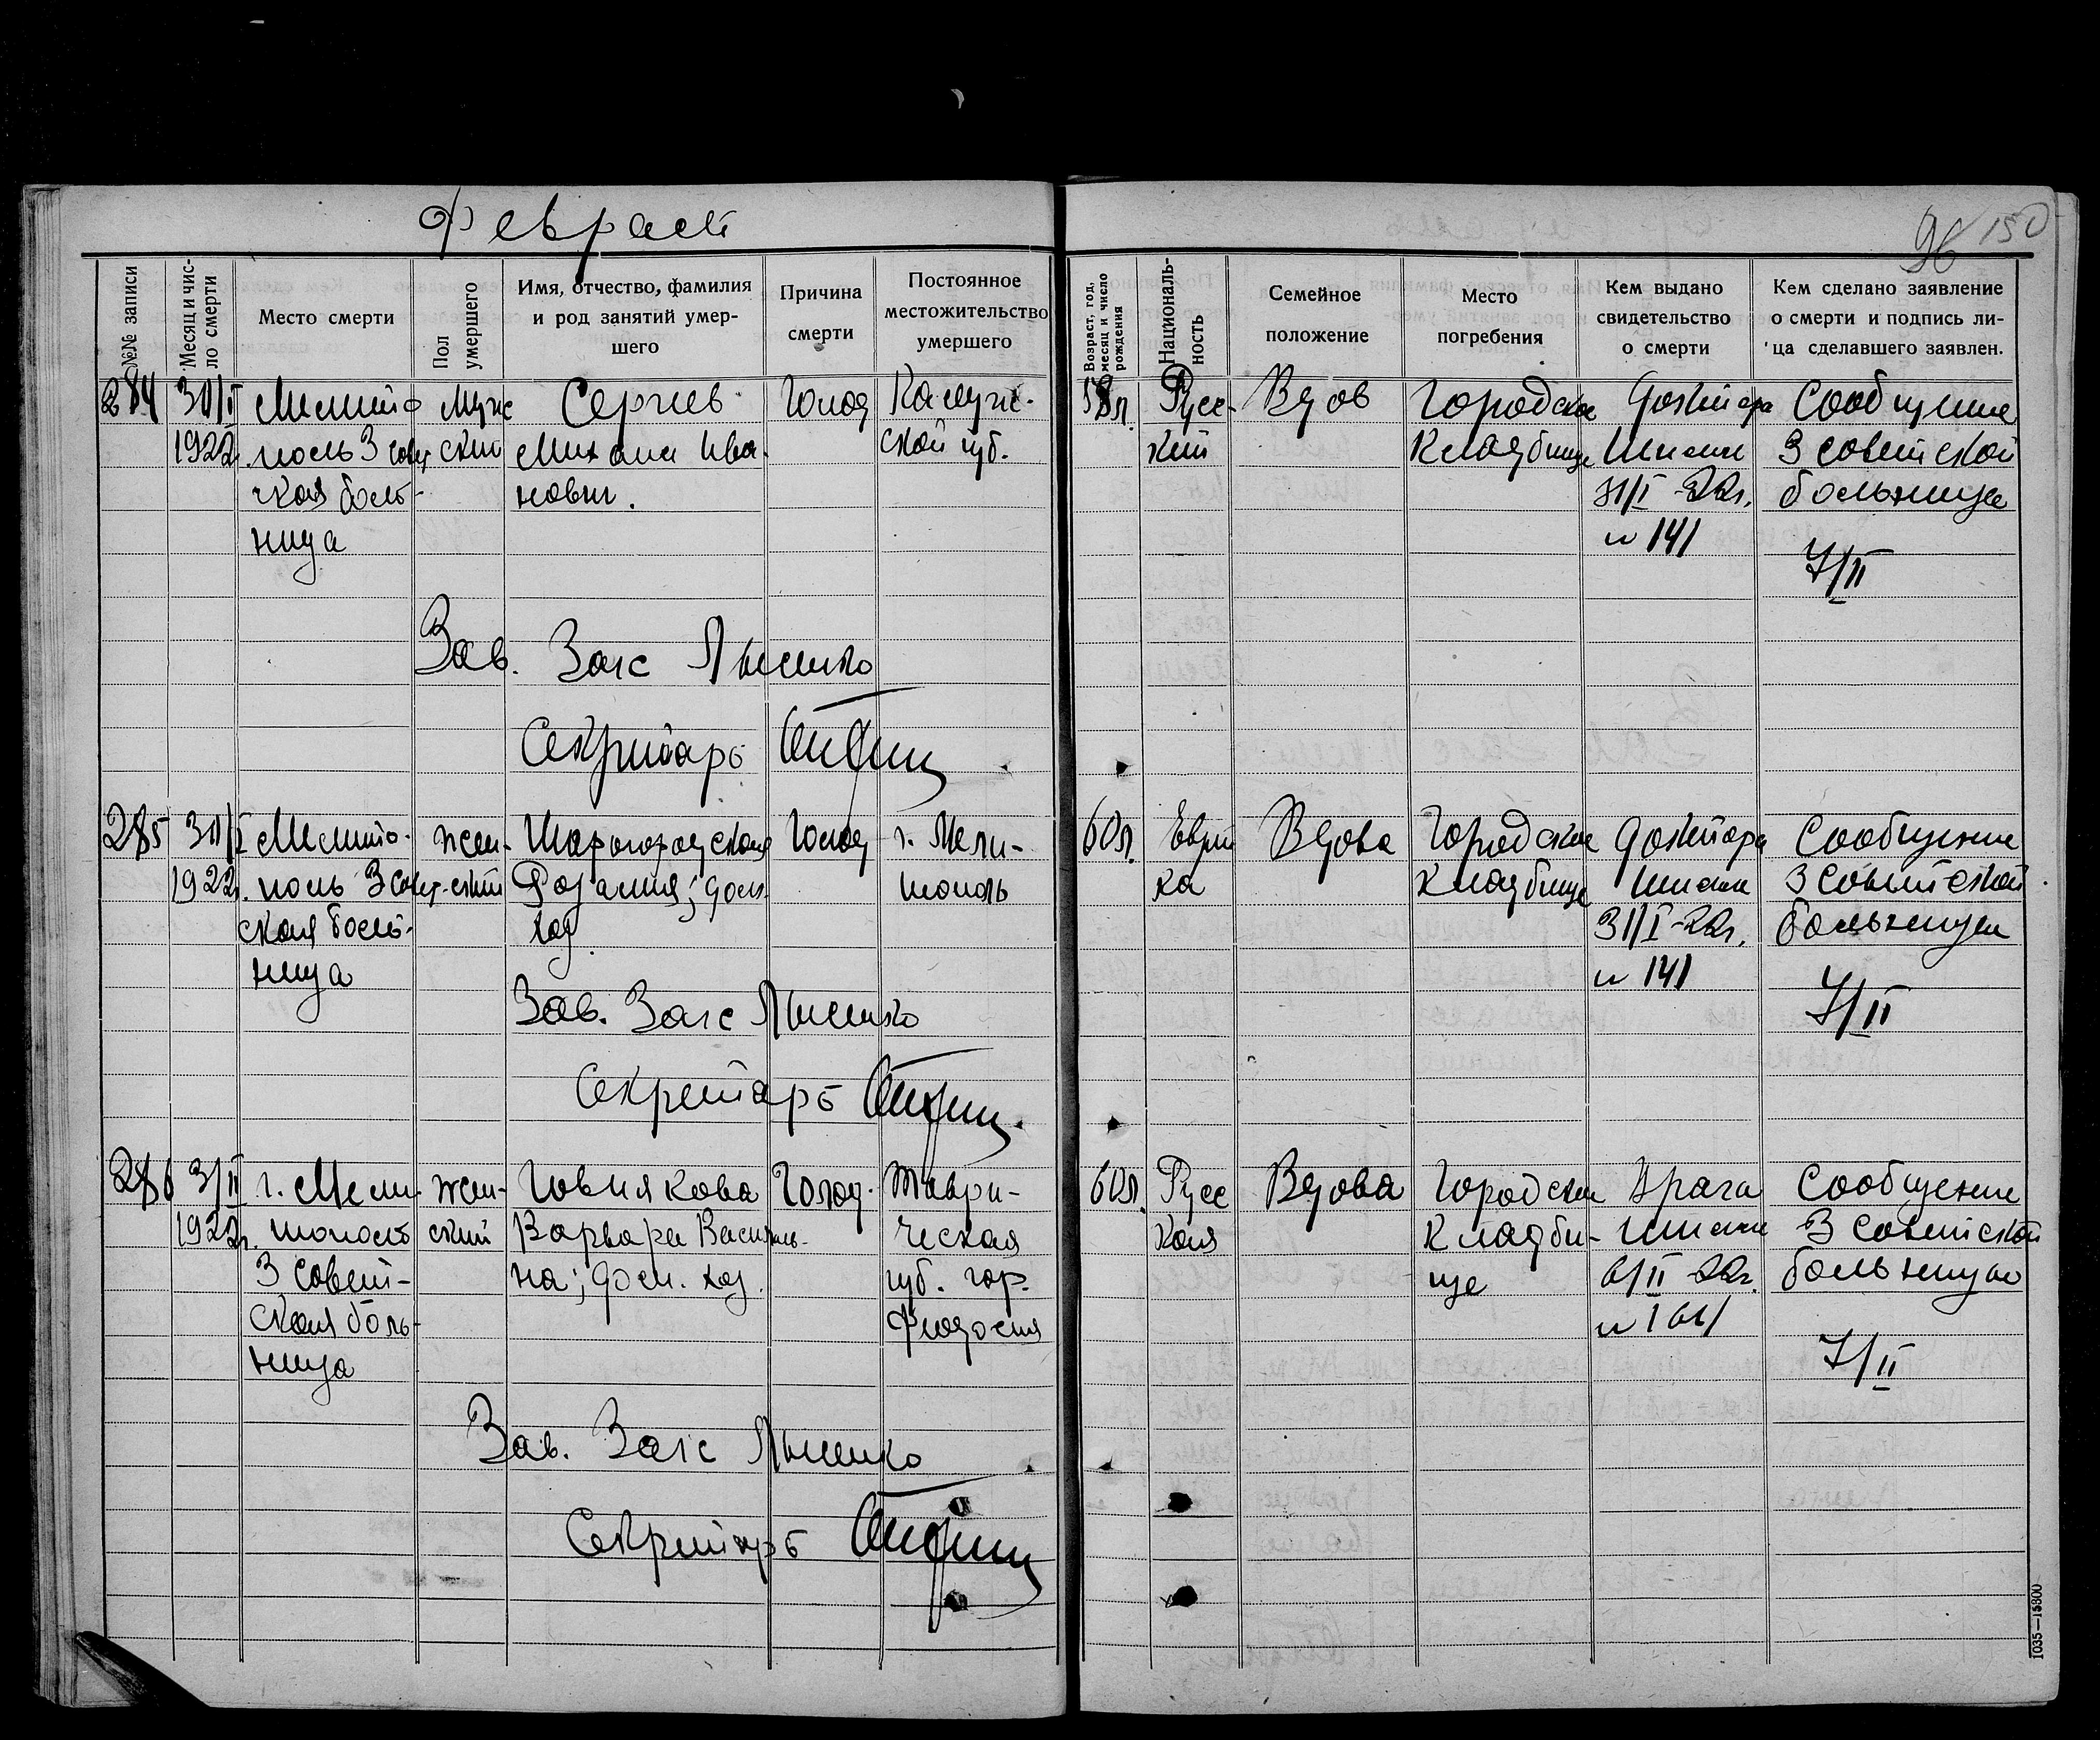 Февраль
96 150
№№ записи
Месяц и чис-
ло смерти
Место смерти
Пол
умершего
Имя, отчество, фамилия
и род занятий умер-
шего
Причина
смерти
Постоянное
местожительство
умершего
Возраст, год,
месяц и число
рождения
Националь-
ность
Семейное
положение
Место
погребения
Кем выдано
свидетельство
о смерти
Кем сделано заявление
о смерти и подпись ли-
ца сделавшего заявлен.
284
31/I
1922г.
Мелито
поль 3 совет
ская боль-
ница
Муж
ской
Сергиев
Михаил Ива-
нович.
Голод
Калуж-
ской губ.
58л.
Русс-
кий
Вдов
Городское
Кладбище
Доктора
31/I-22г.
№ 141
Сообщение
3 советской
больницы
7/II
Зав. Загс Лысенко
Секретарь
285
31/I
1922г.
Мелито-
поль 3 совет-
ская боль-
ница
жен-
ский
Шарогородская
Розалия; дом.
хоз
Голод
г. Мели-
тополь
60л.
Еврей
ка
Вдова
Городское
кладбище
Доктора
31/I-22г.
№ 141
Сообщение
3 советской
больницы
7/II
Зав. Загс Лысенко
Секретарь
286
3/II
1922г.
г. Мели-
тополь
3 совет-
ская боль-
ница
жен-
ский
Говнякова
Варвара Василь-
на; дом. хоз.
Голод.
Таври-
ческая
губ. гор.
Феодосия
60л.
Русс
кая
Вдова
Городское
Кладби-
ще
Врача
6/II-22г.
№ 161
Сообщение
3 советской
больницы
7/II
Зав. Загс Лысенко
Секретарь
1035—15800